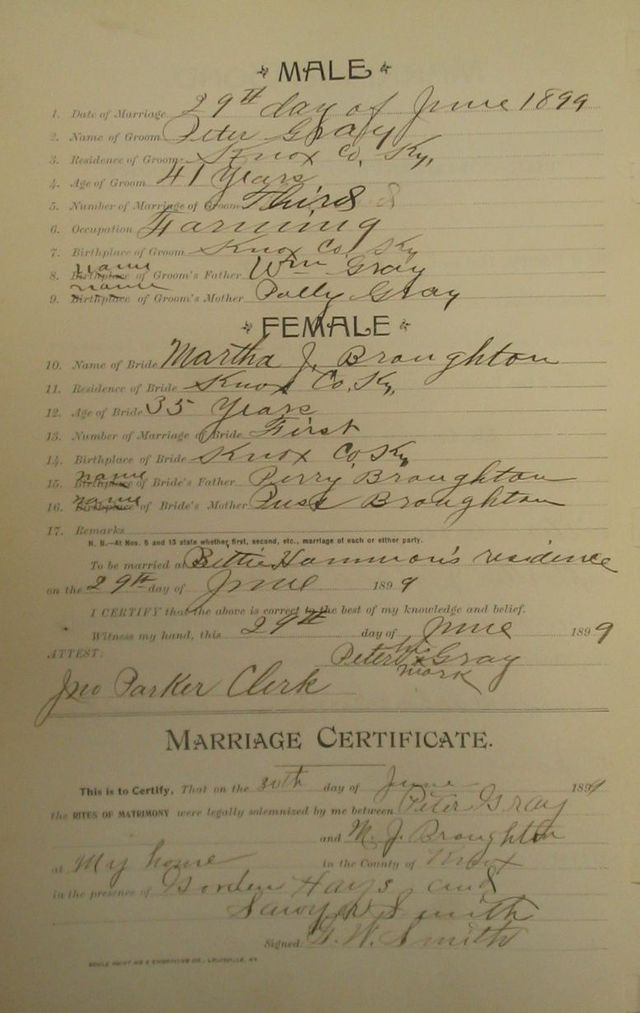 MALE
1. Date of Marriage 29th day of June 1899
2. Name of Groom Peter Gray
3. Residence of Groom Knox Co, Ky,
4. Age of Groom 41 Years
5. Number of Marriage of Groom Third
6. Occupation Farming
7. Birthplace of Groom Knox Co. Ky
8. Birthplace name of Groom's Father Wm Gray
9. Birthplace name of Groom's Mother Polly Gray
FEMALE
10. Name of Bride Martha J. Broughton
11. Residence of Bride Knox Co, Ky,
12. Age of Bride 35 Years
13. Number of Marriage of Bride First
14. Birthplace of Bride Knox Co, Ky
15. Birthplace name of Bride's Father Perry Broughton
16. Birthplace name of Bride's Mother Puss Broughton
17. Remarks
N. B.—At Nos. 5 and 13 state whether first, second, etc., marriage of each or either party.
To be married at Bettie Hammon's residence
on the 29th day of June 1899
I CERTIFY that the above is correct to the best of my knowledge and belief.
Witness my hand, this 29th day of June 1899
ATTEST: Peter his x mark Gray
Jno Parker Clerk
MARRIAGE CERTIFICATE.
This is to Certify, That on the 30th day of June 1899
the RITES OF MATRIMONY were legally solemnized by me between Peter Gray
and M. J. Broughton
at My home in the County of Knox
in the presence of Gorden Hays and
Sawyer Smith
Signed: G. W. Smith